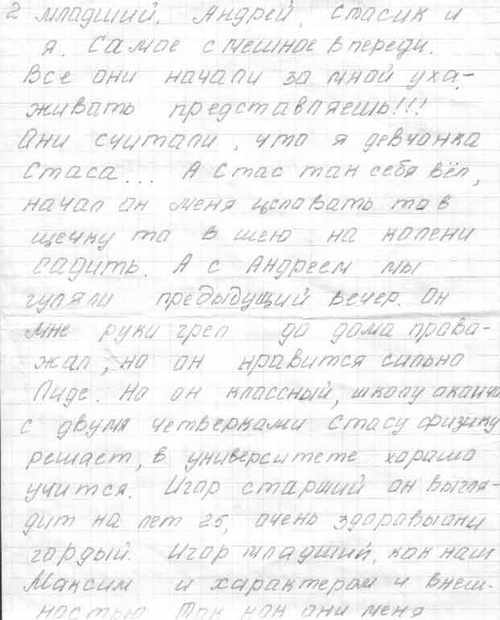 2 младший. Андрей, Стасик и
я. Самое смешное впереди.
Все они начали за мной уха-
живать представляешь!!!
Они считали, что я девчонка
Стаса... А Стас так себя вёл,
начал он меня целовать то в
щечку то в шею на колени
садить. А с Андреем мы
гуляли предыдущий вечер. Он
мне руки грел до дома прова-
жал, но он нравится сильно
Лиде. Но он классный, школу оканчи
с двумя четверками Стасу физику
решает, в университете хорашо
учится. Игор старший он выгля-
дит на лет 25, очень здоравы они
гордый. Игор младший, как наш
Максим и характером и внеш-
ностью. Так как они меня